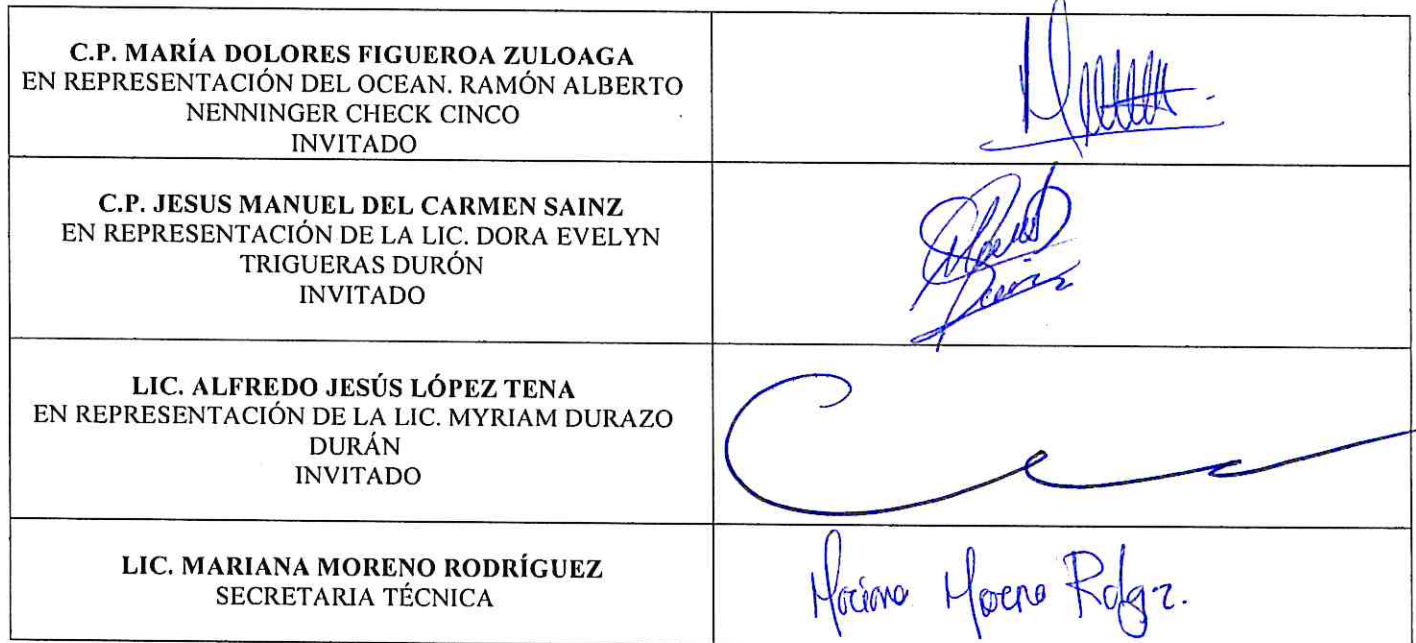 C.P. MARÍA DOLORES FIGUEROA ZULOAGA
EN REPRESENTACIÓN DEL OCEAN. RAMÓN ALBERTO
NENNINGER CHECK CINCO
INVITADO
C.P. JESUS MANUEL DEL CARMEN SAINZ
EN REPRESENTACIÓN DE LA LIC. DORA EVELYN
TRIGUERAS DURÓN
INVITADO
LIC. ALFREDO JESÚS LÓPEZ TENA
EN REPRESENTACIÓN DE LA LIC. MYRIAM DURAZO
DURÁN
INVITADO
LIC. MARIANA MORENO RODRÍGUEZ
SECRETARIA TÉCNICA
Mariana Moreno Rdgz.